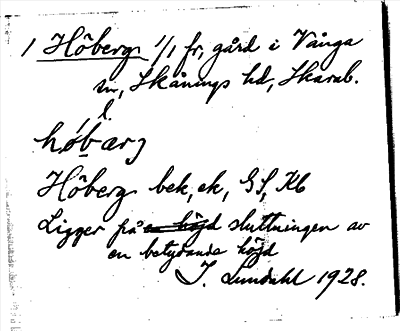 1 Höberg 1/1 fr, gård i Vånga
sn, Skånings hd, Skarab.
l.
høbærj
Höberg bek, ek, GS, Kb
Ligger på en höjd sluttningen av
en betydande höjd
J. Lundahl 1928.